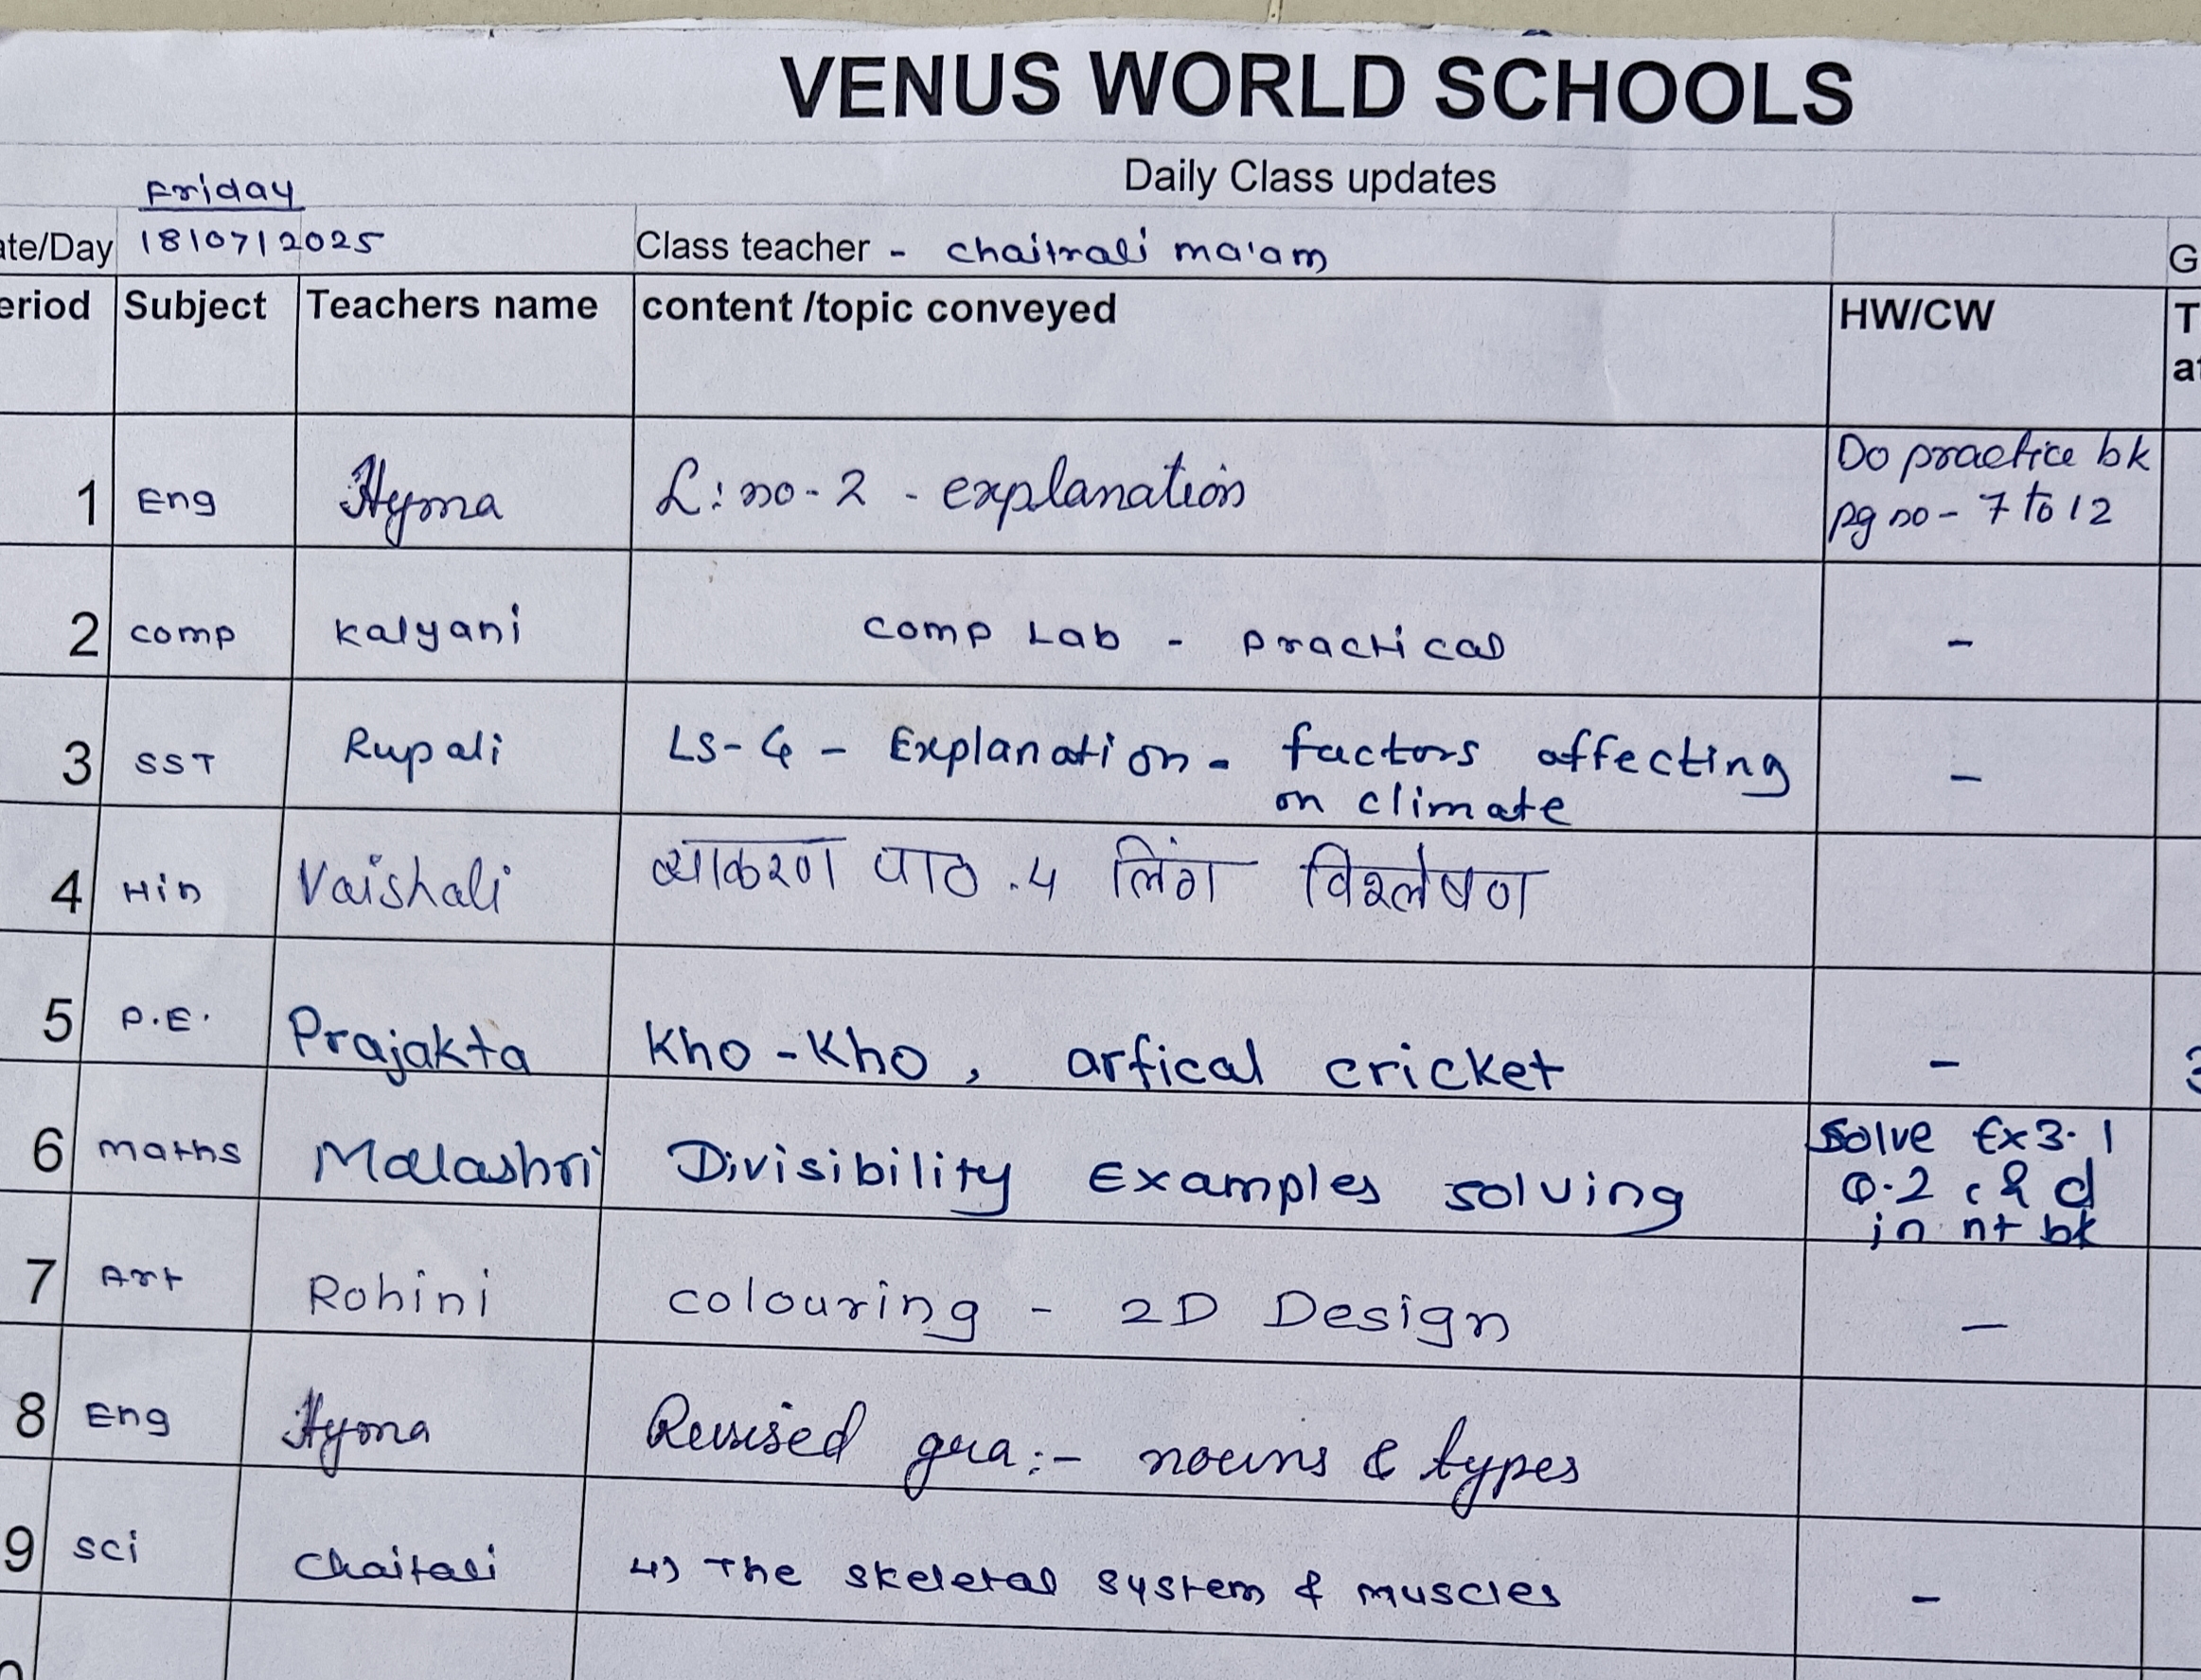 VENUS WORLD SCHOOLS
Daily Class updates
Friday
ate/Day 18/07/2025 Class teacher - chaitrali ma'am G
eriod Subject Teachers name content /topic conveyed HW/CW T
at
1 Eng Hyma L: no - 2 - explanation Do practice bk
pg no - 7 to 12
2 comp Kalyani comp Lab - practical -
3 SST Rupali LS-4 - Explanation - factors affecting -
on climate
4 Hin Vaishali व्याकरण पाठ .4 लिंग विश्लेषण
5 P.E. Prajakta Kho-Kho, arfical cricket -
6 maths Malashri Divisibility Examples solving Solve Ex 3.1
Q.2 c & d
in nt bk
7 Art Rohini colouring - 2D Design -
8 Eng Hyma Revised gra:- nouns & types
9 sci Chaitali 4) The skeletal system & muscles -